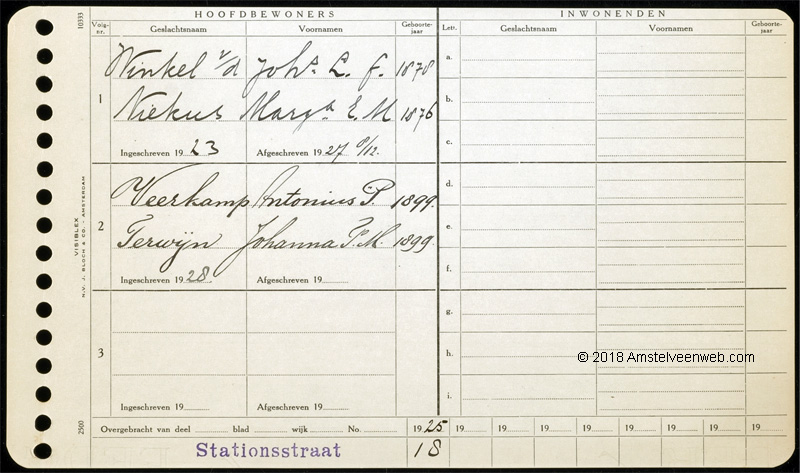 HOOFDBEWONERS
INWONENDEN
Volg-nr. Geslachtsnaam Voornamen Geboorte-jaar
Lett. Geslachtsnaam Voornamen Geboorte-jaar
1
Winkel v/d Joh.s L. F. 1878
Niekus Marg.a E. M 1876
Ingeschreven 19 23 Afgeschreven 19 27 9/12.
2
Veerkamp Antonius P. 1899.
Terwijn Johanna P. M. 1899
Ingeschreven 19 28. Afgeschreven 19
3
Ingeschreven 19 Afgeschreven 19
a.
b.
c.
d.
e.
f.
g.
h.
i.
Overgebracht van deel blad wijk No. 19 25 19 19 19 19 19 19 19 19
Stationsstraat 18
10333
VISIBLEX
N.V. J. BLOCH & CO. - AMSTERDAM
2500
© 2018 Amstelveenweb.com